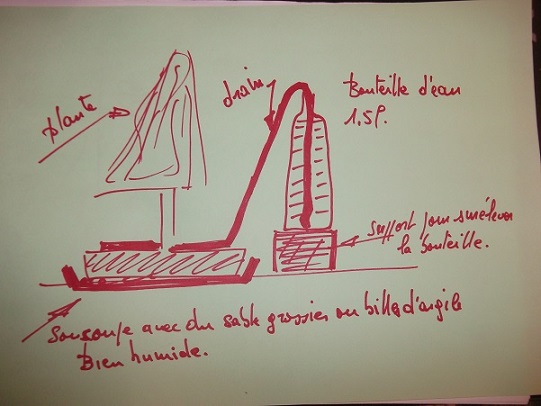 plante
drain
Bouteille d'eau
1,5l.
support pour surélever
la bouteille.
Sousoupe avec du sable grossier ou billes d'argile
Bien humide.